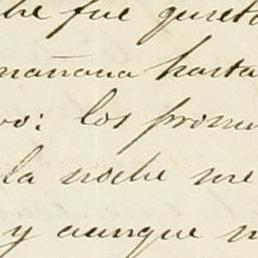 che fue quieto
mañana hasta
vo: los prime
la noche me
y aunque n